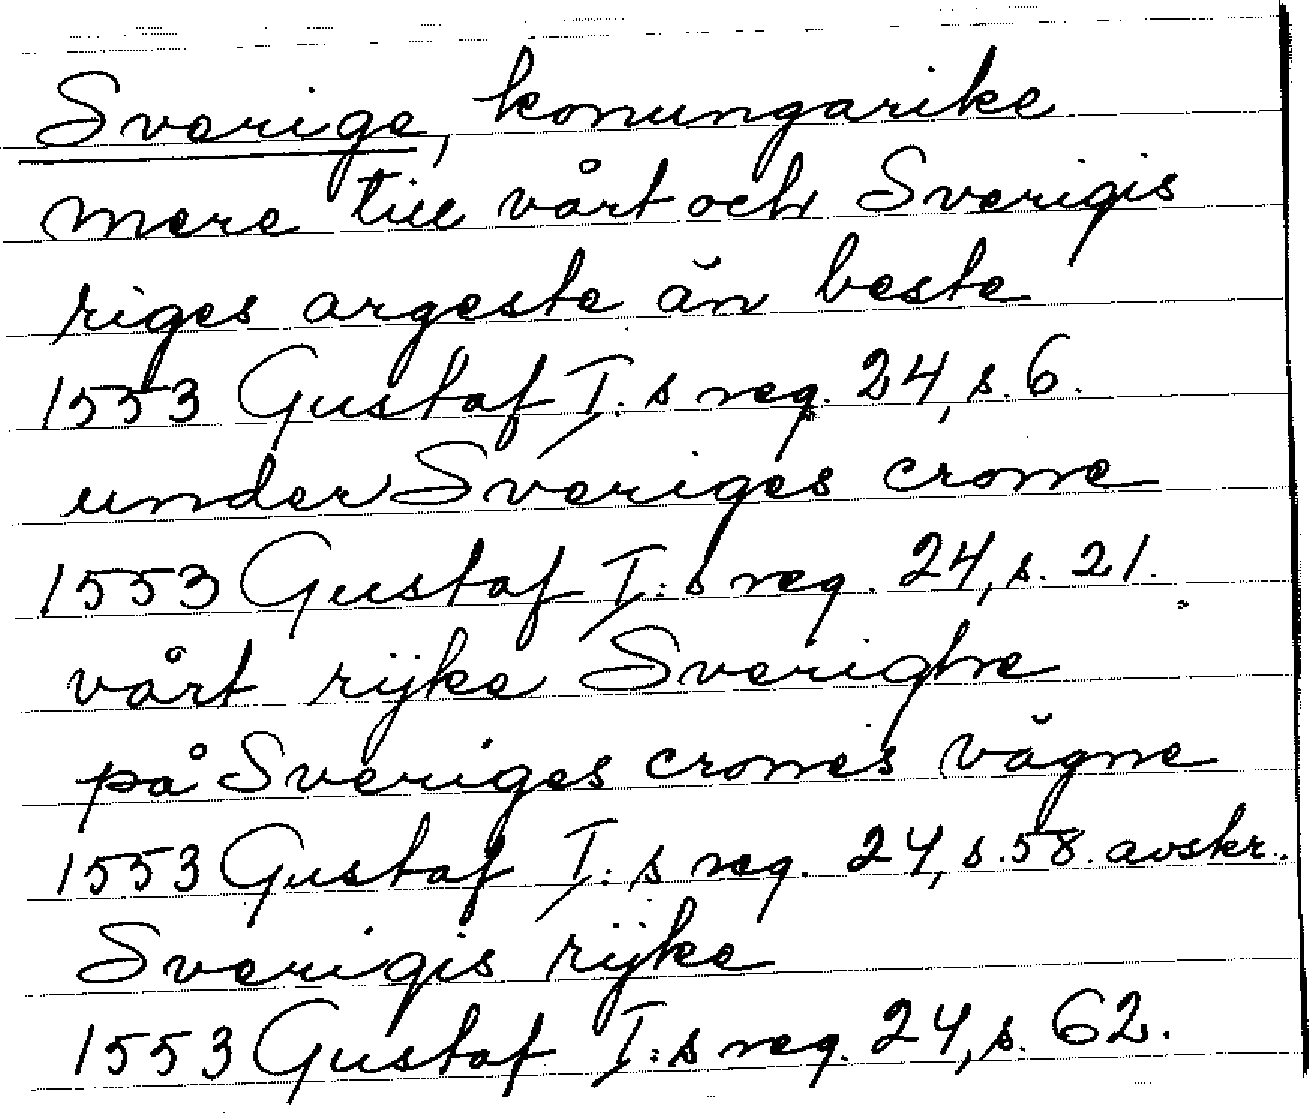 Sverige, konungarike
mere till vårt och Sverigis
riges argeste än beste
1553 Gustaf I:s reg. 24, s. 6.
under Sveriges crone
1553 Gustaf I:s reg. 24, s. 21.
vårt rijke Sverighe
på Sveriges crones vägne
1553 Gustaf I:s reg. 24, s. 58. avskr.
Sverigis rijke
1553 Gustaf I:s reg. 24, s. 62.